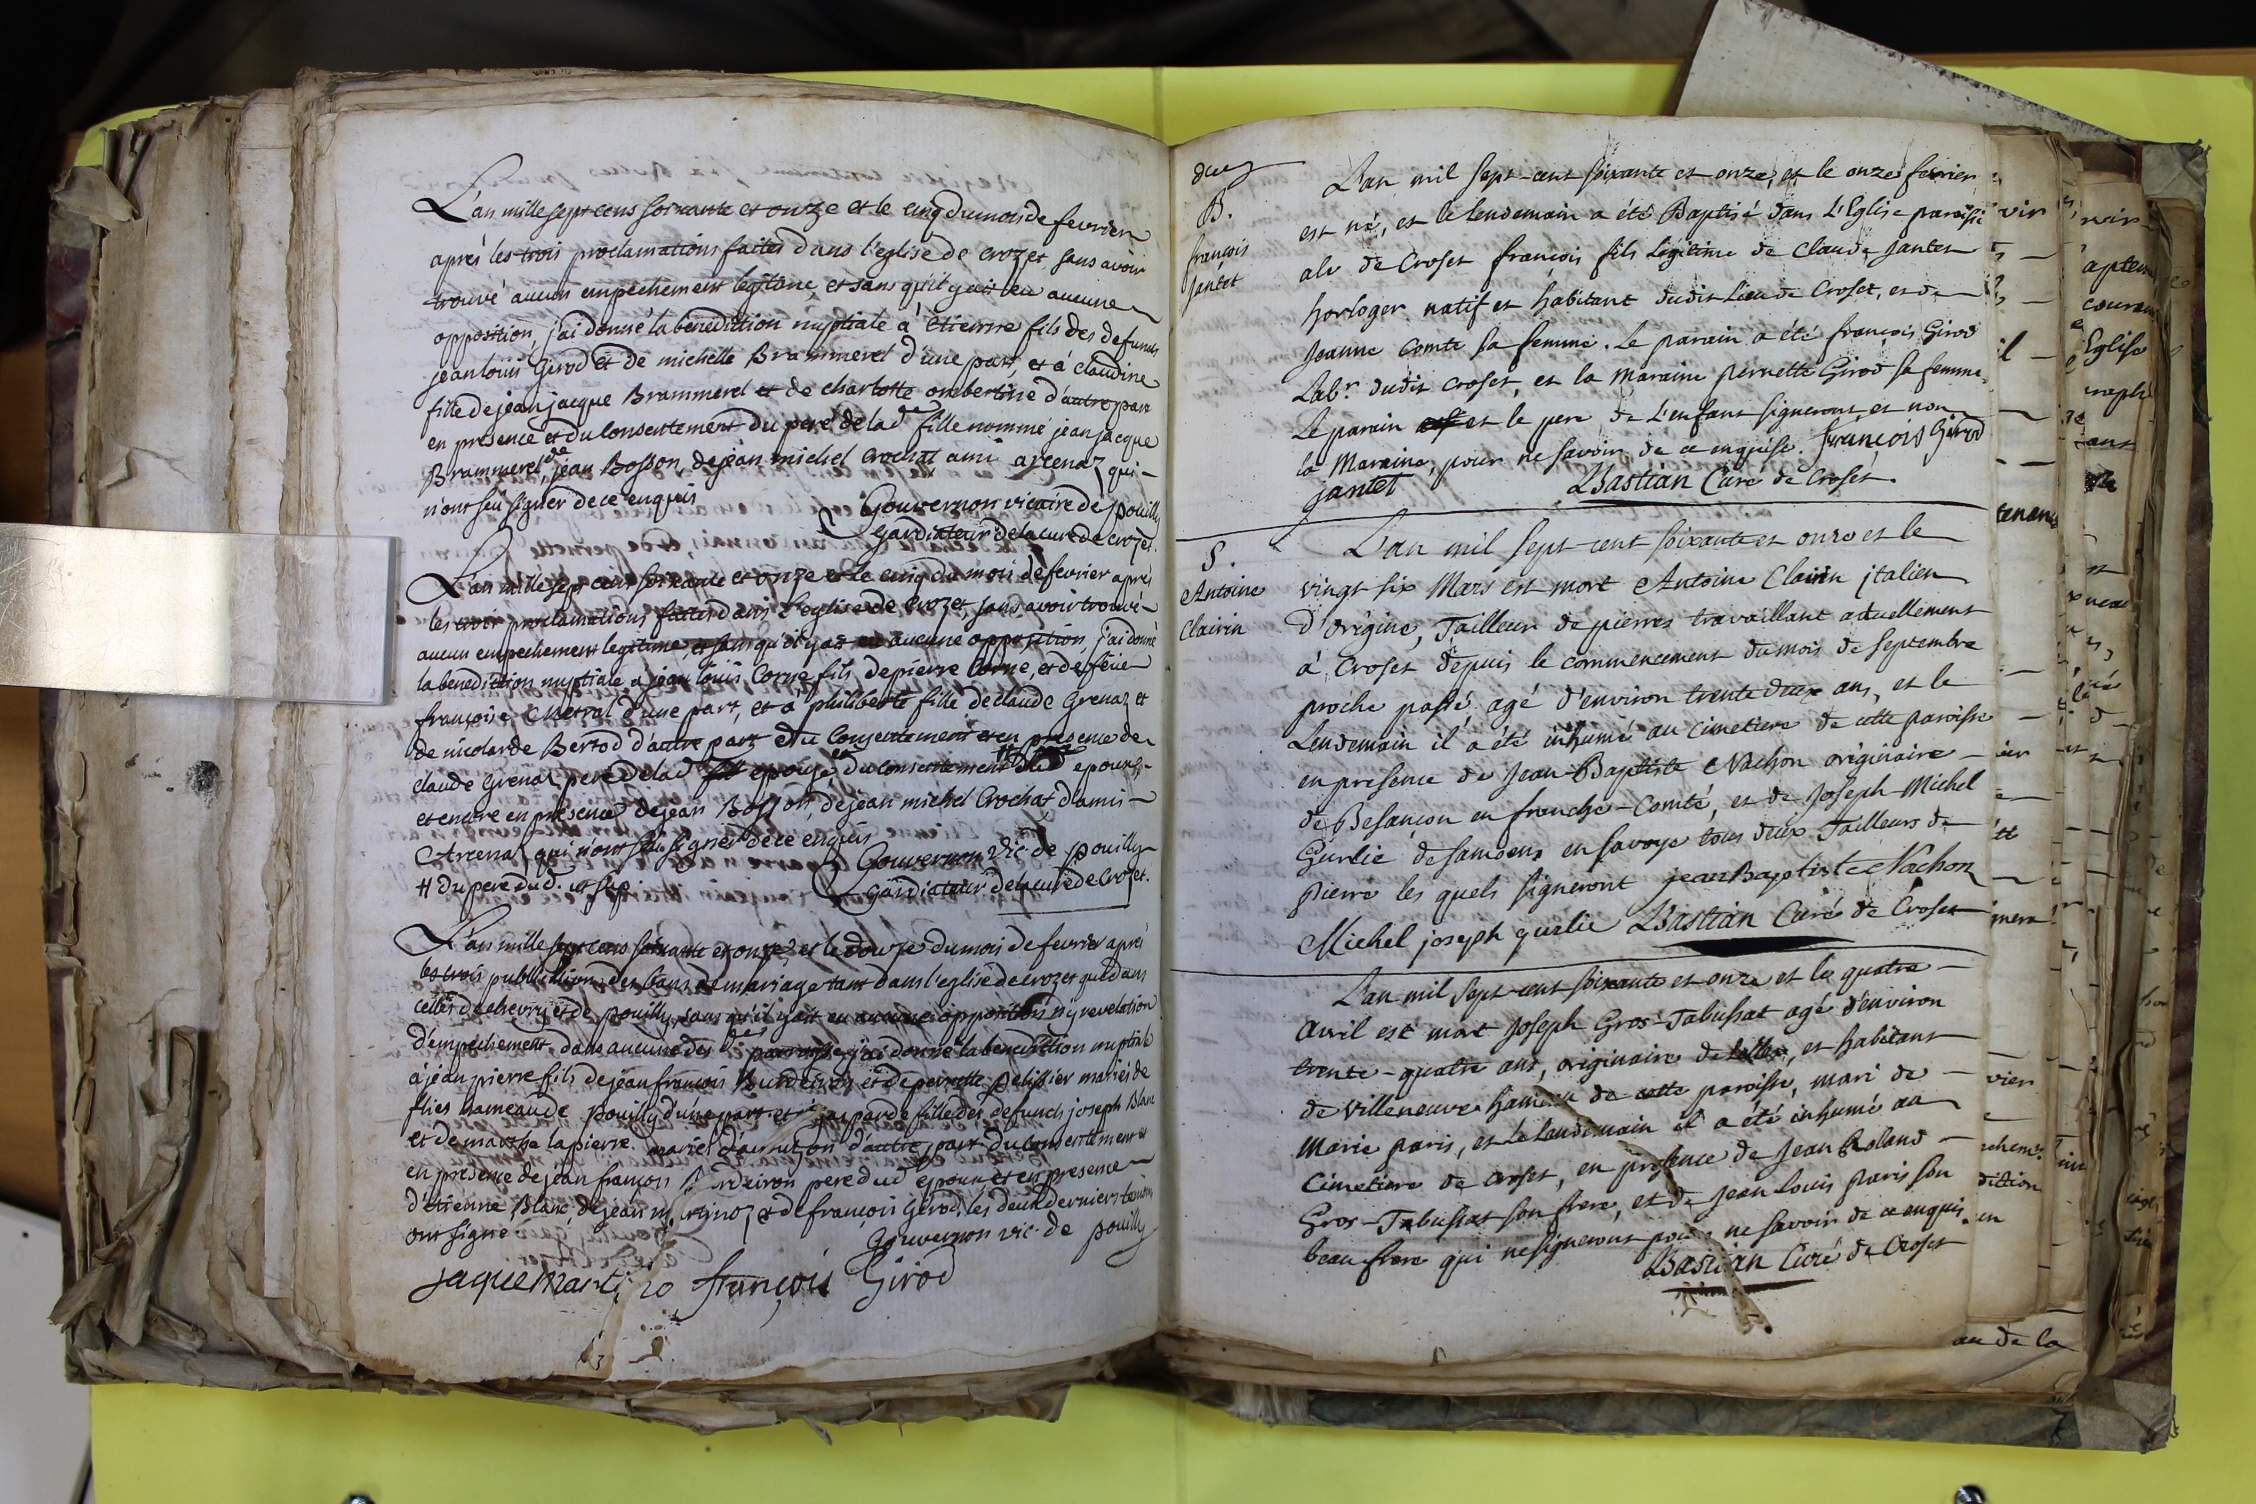 L'an mille sept cens soixante et onze et le cinq du mois de fevrier
aprés les trois proclamations faites dans l'eglise de crozet sans avoir
trouvé aucun empechement legitime, et sans qu'il y ait eu aucune
opposition, j'ai donné la benediction nuptiale a etienne fils des defuncts
jean louis Girod et de michelle Brammerel d'une part, et á claudine
fille de jean jacque Brammerel et de charlotte d'autre part
en présence et du consentement du pere de lad.te fille nommé jean jacque
Brammerel, de jean Bosson, de jean michel Crochat ami arcenaz qui
n'ont seü signer de ce enquis
Gouvernon vicaire de pouilly
Gardiateur de la cure de crozet.
L'an mille sept cens soixante et onze et le cinq du mois de fevrier aprés
les trois proclamations faites dans l'eglise de crozet, sans avoir trouvé
aucun empechement legitime, et sans qu'il y ait eu aucune opposition, j'ai donné
la benediction nuptiale a jean louis Corne fils de pierre Corne, et de feüe
françoise Metral d'une part, et á philiberte fille de claude Grenaz et
de nicolarde Bertod d'autre part du consentement et en presence de
claude Grenaz pere de lad epouse, et du consentement # epoux,
et encore en présence de jean Bosson, de jean michel Crochat d'ami
Arcenaz qui n'ont seü signer de ce enquis
Gouvernon vic. de pouilly
# du pere dud. ut sup
Gardiateur de la cure de Crozet.
L'an mille sept cens soixante et onze, et le douze du mois de fevrier aprés
les trois publications des bans de mariage tant dans l'eglise de crozet que dans
celles de chevry et de pouilly, sans qu'il y ait eu aucune opposition ny revelation
d'empechement, dans aucune des paroisses j'ai donné la benediction nuptiale
a jean pierre fils de jean françois Burdeiron et de pernette pelissier mariés de
flies hameau de pouilly d'une part et á fille des defuncts joseph Blanc
et de marthe lapierre mariés d'autre part du consentement et
en présence de jean françois Burdeiron pere dud epoux et en presence
d'etienne Blanc, de jean et de françois Girod, les deux derniers temoins
ont signé
Gouvernon vic. de pouilly
jaque françois Girod
B.
françois
jantet
L'an mil sept-cent soixante et onze, et le onze fevrier
est né, et le lendemain a été Baptisé dans L'Eglise paroissi
ale de Croset françois fils legitime de Claude jantet
horloger natif et habitant dudit Lieu de Croset, et de
jeanne Comte sa femme. Le parain a été françois Girod
Lab.r dudit Croset, et la Maraine pernette Girod sa femme
Le parain et le pere de L'enfant signeront, et non
la Maraine, pour ne savoir de ce enquise. françois Girod
jantet
Bastian Curé de Croset.
S.
Antoine
Clairin
L'an mil sept cent soixante et onze et le
vingt six Mars est mort Antoine Clairin italien
d'origine, Tailleur de pierres travaillant actuellement
á Croset depuis le commencement du mois de septembre
proche passé agé d'environ trente deux ans, et le
Lendemain il a été inhumé au cimetiere de cette paroisse
en presence de Jean-Baptiste Nachon originaire
de Besançon en franche-Comté, et de Joseph-Michel
Gurlie de samoens en savoye tous deux Tailleurs de
pierre les quels signeront jean Baptiste Nachon
Michel joseph gurlie Bastian Curé de Croset
L'an mil sept-cent soixante et onze et le quatre
avril est mort joseph Gros-Tabussat agé d'environ
trente-quatre ans, originaire de, et habitant
de Villeneuve hameau de cette paroisse, mari de
Marie paris, et Le Lendemain il a été inhumé au
Cimetiere de Croset, en presence de Jean Roland
Gros-Tabussat son frere, et de Jean Louis Paris son
beau frere qui ne signeront pour ne savoir de ce enquis.
Bastian Curé de Croset
au de la